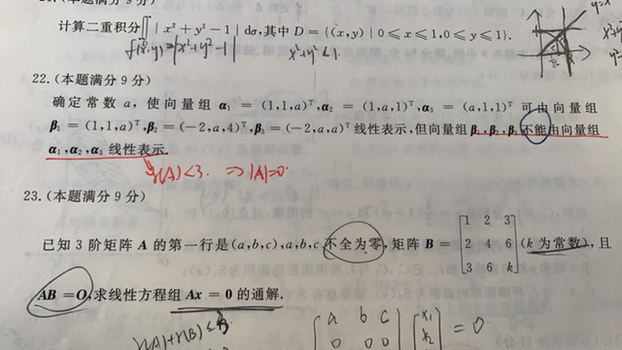 21.(本题满分9分)
计算二重积分∬ | x² + y² − 1 | dσ,其中 D = {(x,y) | 0 ⩽ x ⩽ 1,0 ⩽ y ⩽ 1}.
= |x²+y²−1| x²+y²<1
22.(本题满分9分)
确定常数 a, 使向量组 α₁ = (1,1,a)ᵀ,α₂ = (1,a,1)ᵀ,α₃ = (a,1,1)ᵀ 可由向量组
β₁ = (1,1,a)ᵀ,β₂ = (−2,a,4)ᵀ,β₃ = (−2,a,a)ᵀ 线性表示,但向量组 β₁,β₂,β₃ 不能由向量组
α₁,α₂,α₃ 线性表示.
r(A)<3. ⇒ |A|=0
23.(本题满分9分)
已知 3 阶矩阵 A 的第一行是(a,b,c),a,b,c 不全为零,矩阵 B = [1 2 3
2 4 6
3 6 k] (k 为常数),且
AB = O,求线性方程组 Ax = 0 的通解.
r(A)+r(B)≤3
[a b c
0 0 0] [x₁
x₂] = 0